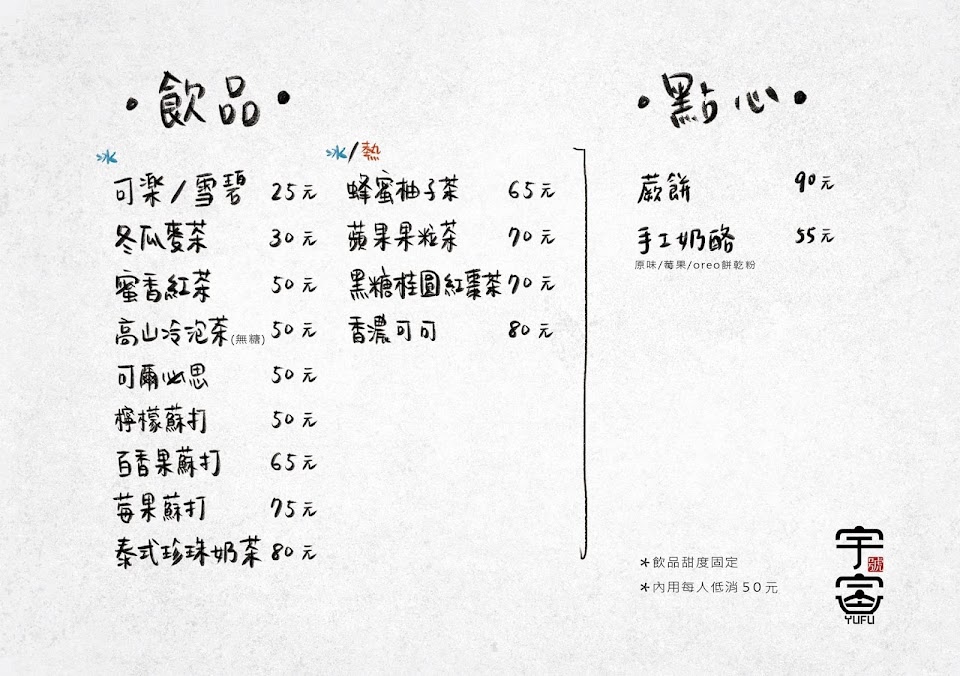 •飲品•
冰
可樂/雪碧 25元
冬瓜麥茶 30元
蜜香紅茶 50元
高山冷泡茶(無糖) 50元
可爾必思 50元
檸檬蘇打 50元
百香果蘇打 65元
莓果蘇打 75元
泰式珍珠奶茶 80元
冰/熱
蜂蜜柚子茶 65元
蘋果果粒茶 70元
黑糖桂圓紅棗茶 70元
香濃可可 80元
•點心•
蕨餅 90元
手工奶酪 55元
原味/莓果/oreo餅乾粉
*飲品甜度固定
*內用每人低消50元
宇富
號
YUFU